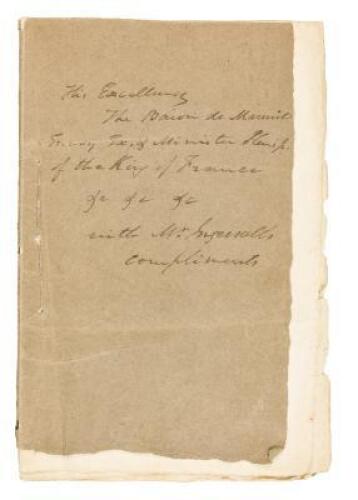 His Excellency
The Baron de Mareuil
Envoy Ex. & Minister Plenip.
of the King of France
&c &c &c
with Mr. Ingersoll's
compliments